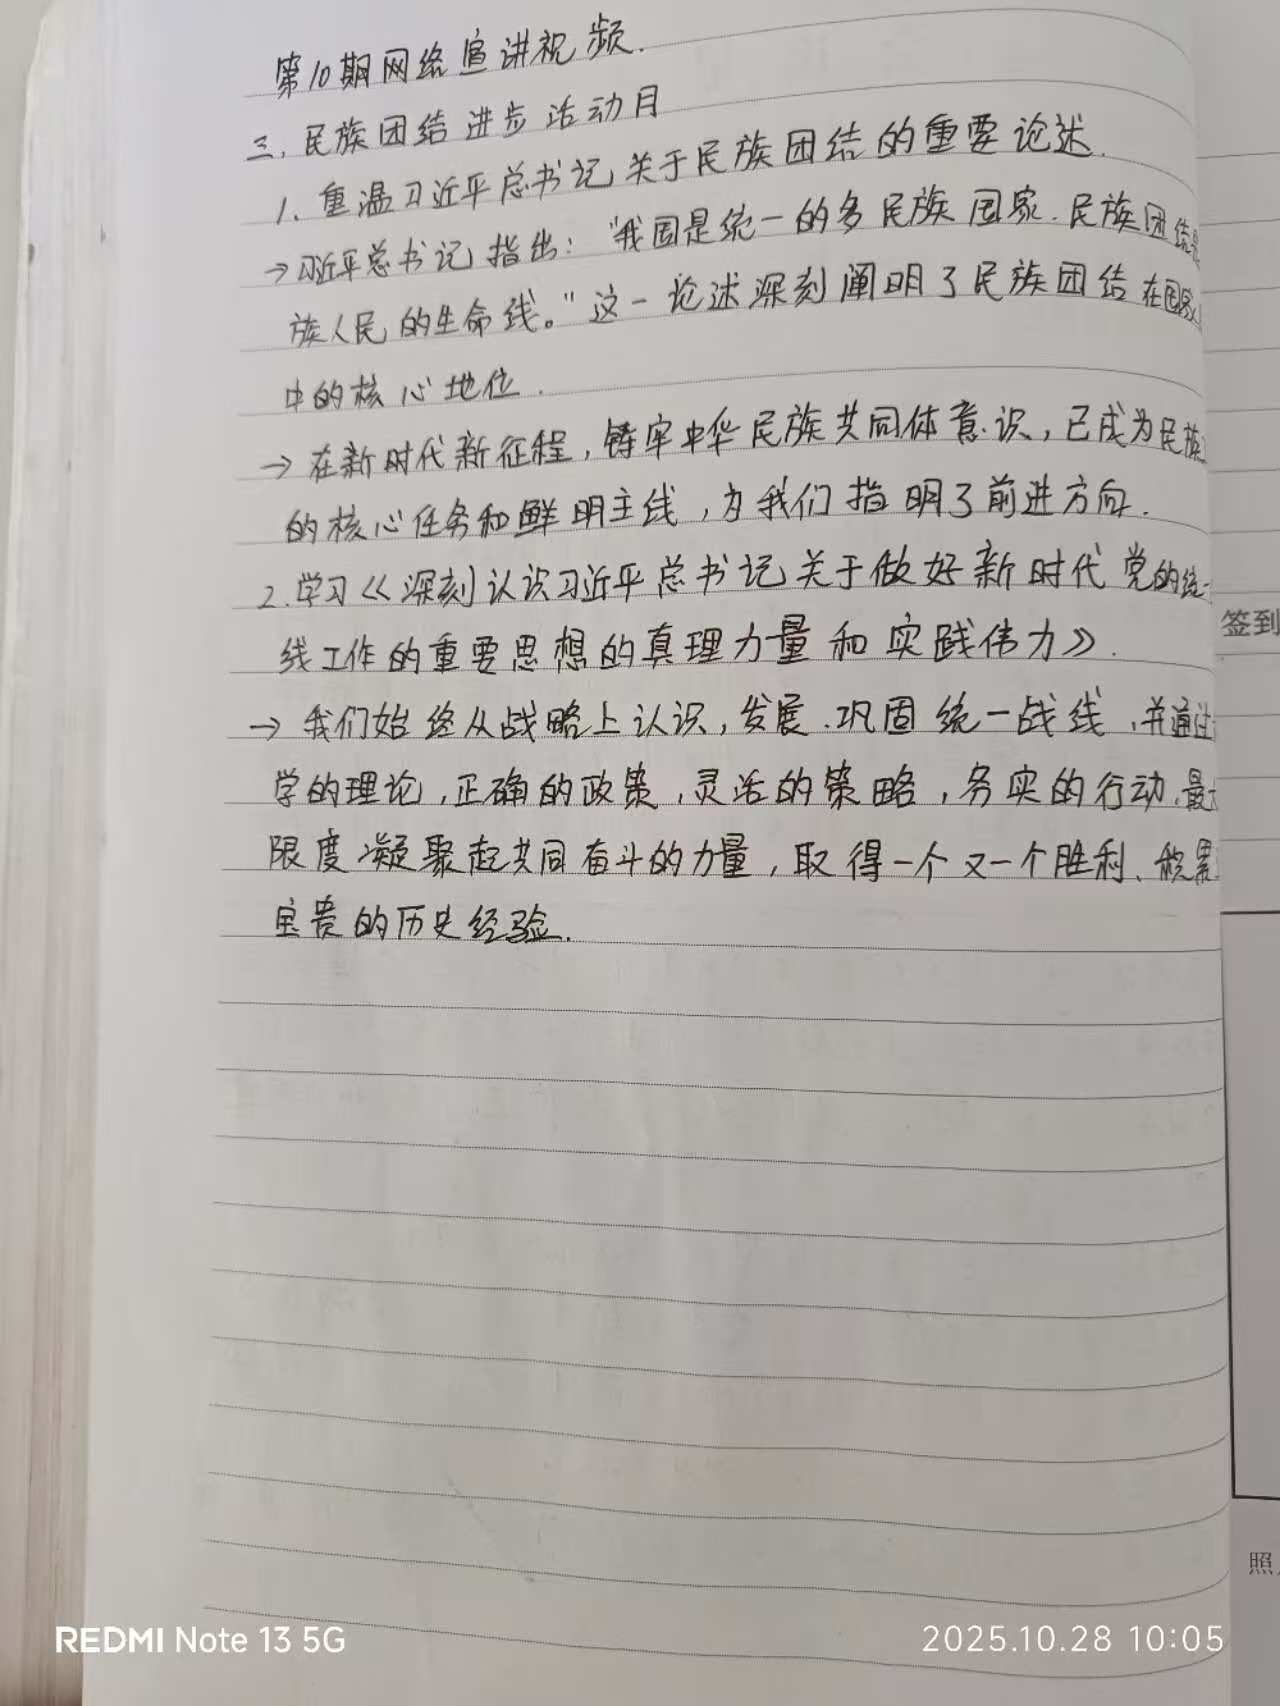 第10期网络宣讲视频.
三.民族团结进步活动月
1.重温习近平总书记关于民族团结的重要论述.
→习近平总书记指出:“我国是统一的多民族国家.民族团结是
族人民的生命线。”这一论述深刻阐明了民族团结在国家
中的核心地位.
→在新时代新征程,铸牢中华民族共同体意识,已成为民族
的核心任务和鲜明主线,为我们指明了前进方向.
2.学习《深刻认识习近平总书记关于做好新时代党的统一
线工作的重要思想的真理力量和实践伟力》.
→我们始终从战略上认识,发展.巩固统一战线,并通过
学的理论,正确的政策,灵活的策略,务实的行动.最大
限度凝聚起共同奋斗的力量,取得一个又一个胜利、积累
宝贵的历史经验.
签到
照
REDMI Note 13 5G
2025.10.28 10:05